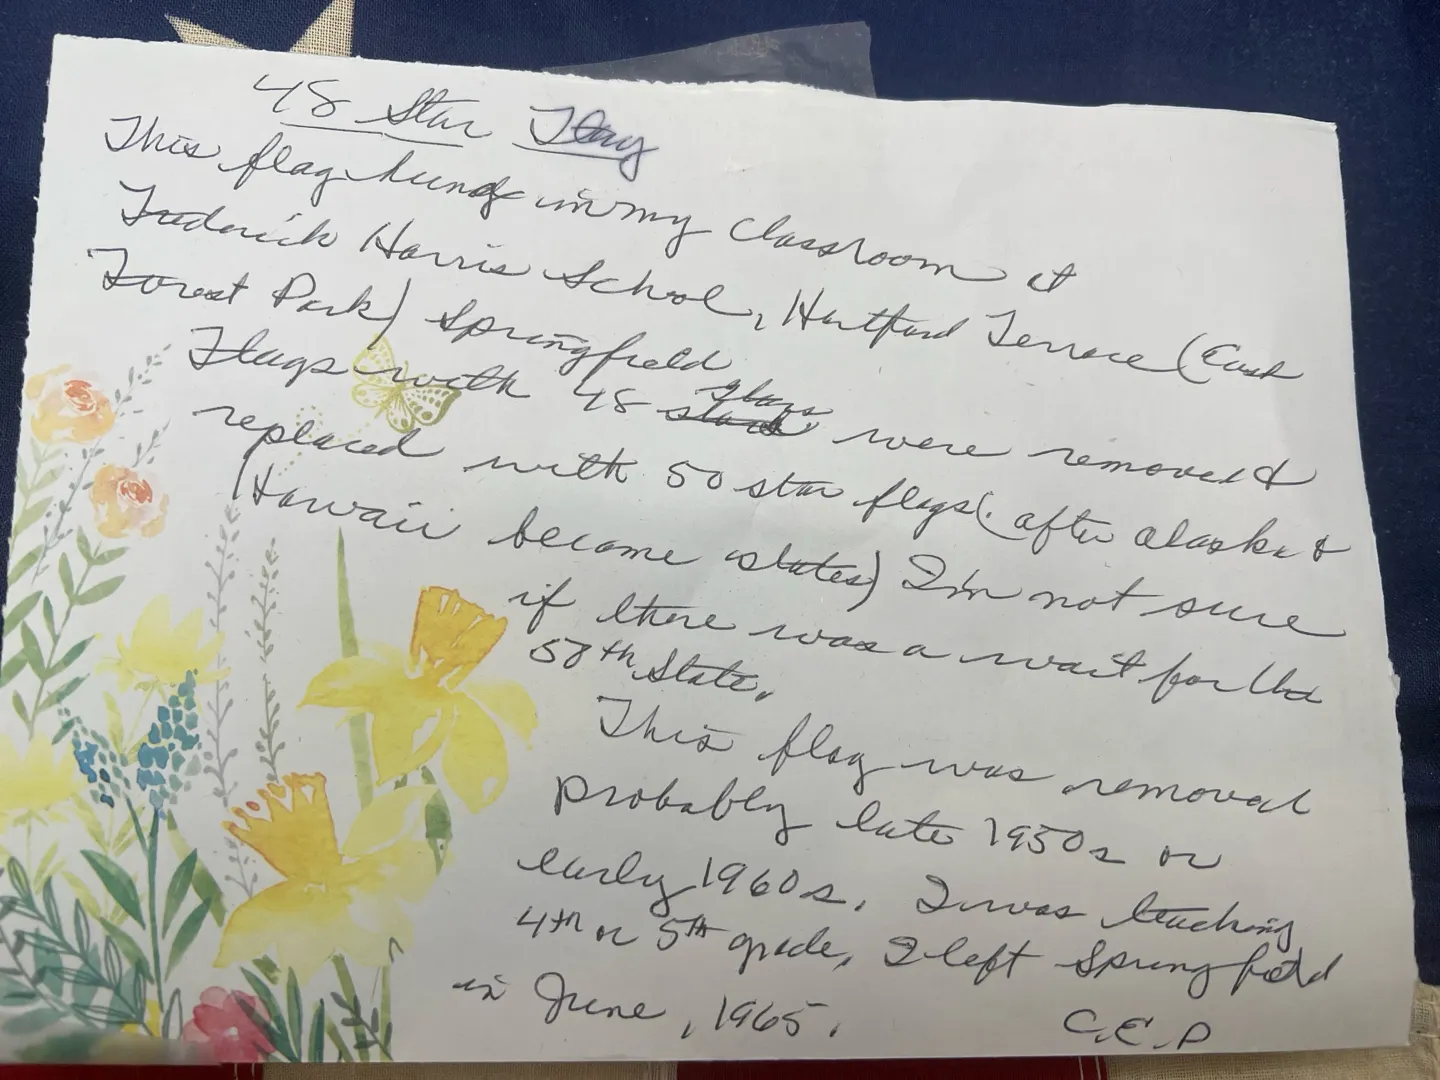 48 Star Flag
This flag hung in my classroom at
Frederick Harris School, Hartford Terrace (East
Forest Park) Springfield
Flags with 48 flags were removed &
replaced with 50 star flags (after Alaska &
Hawaii became states) I'm not sure
if there was a wait for the
50th State.
This flag was removed
probably late 1950s or
early 1960s. I was teaching
4th or 5th grade, I left Springfield
in June, 1965.
C.E.P